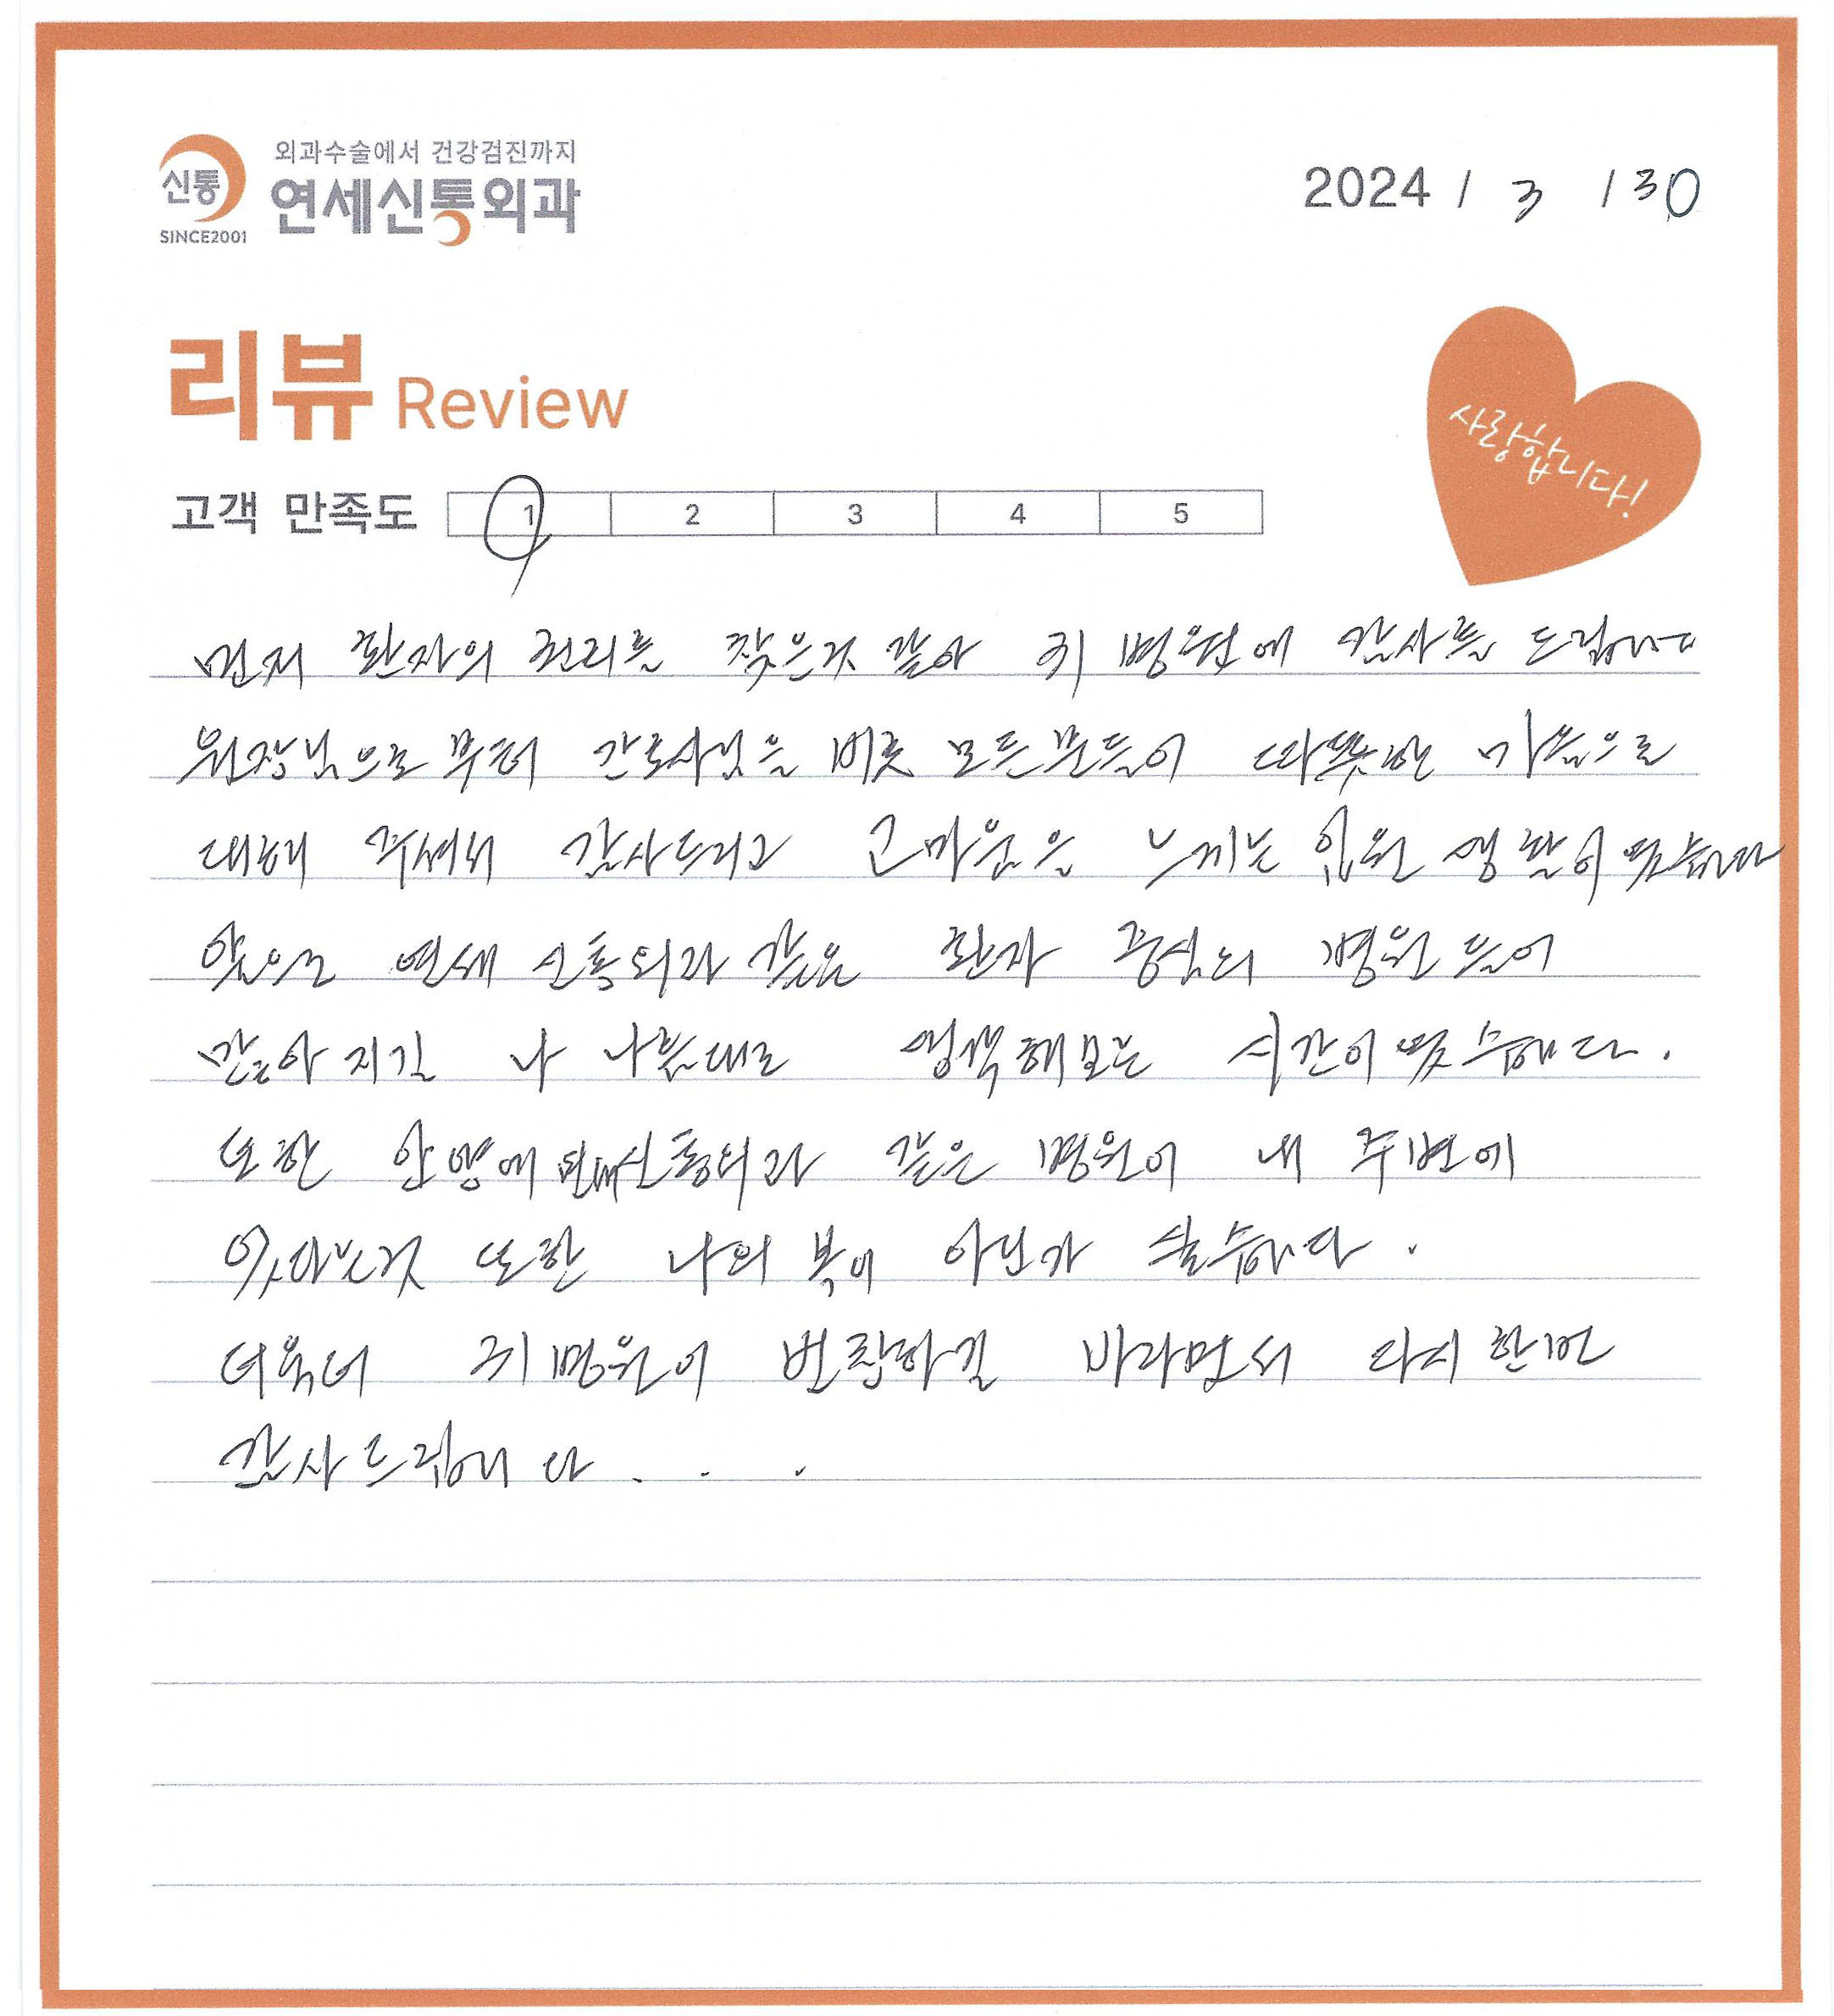 외과수술에서 건강검진까지
신통
연세신통외과
SINCE2001
2024 / 3 / 30
리뷰 Review
사랑합니다!
고객 만족도 1 2 3 4 5
먼저 환자의 권리를 찾은거 같아 귀 병원에 감사를 드립니다
원장님으로 부터 간호사님을 비롯 모든분들이 따뜻한 마음으로
대해 주셔서 감사드리고 고마운을 느끼는 입원 생활이였습니다
앞으로 연세 신통외과 같은 환자 중심의 병원들이
많아 지길 나 나름대로 생각해보는 시간이였습니다.
또한 안양에 연세신통외과 같은 병원이 내 주변에
있다는것 또한 나의 복이 아닌가 싶습니다.
더욱더 귀병원이 번창하길 바라면서 다시 한번
감사드립니다 . . .